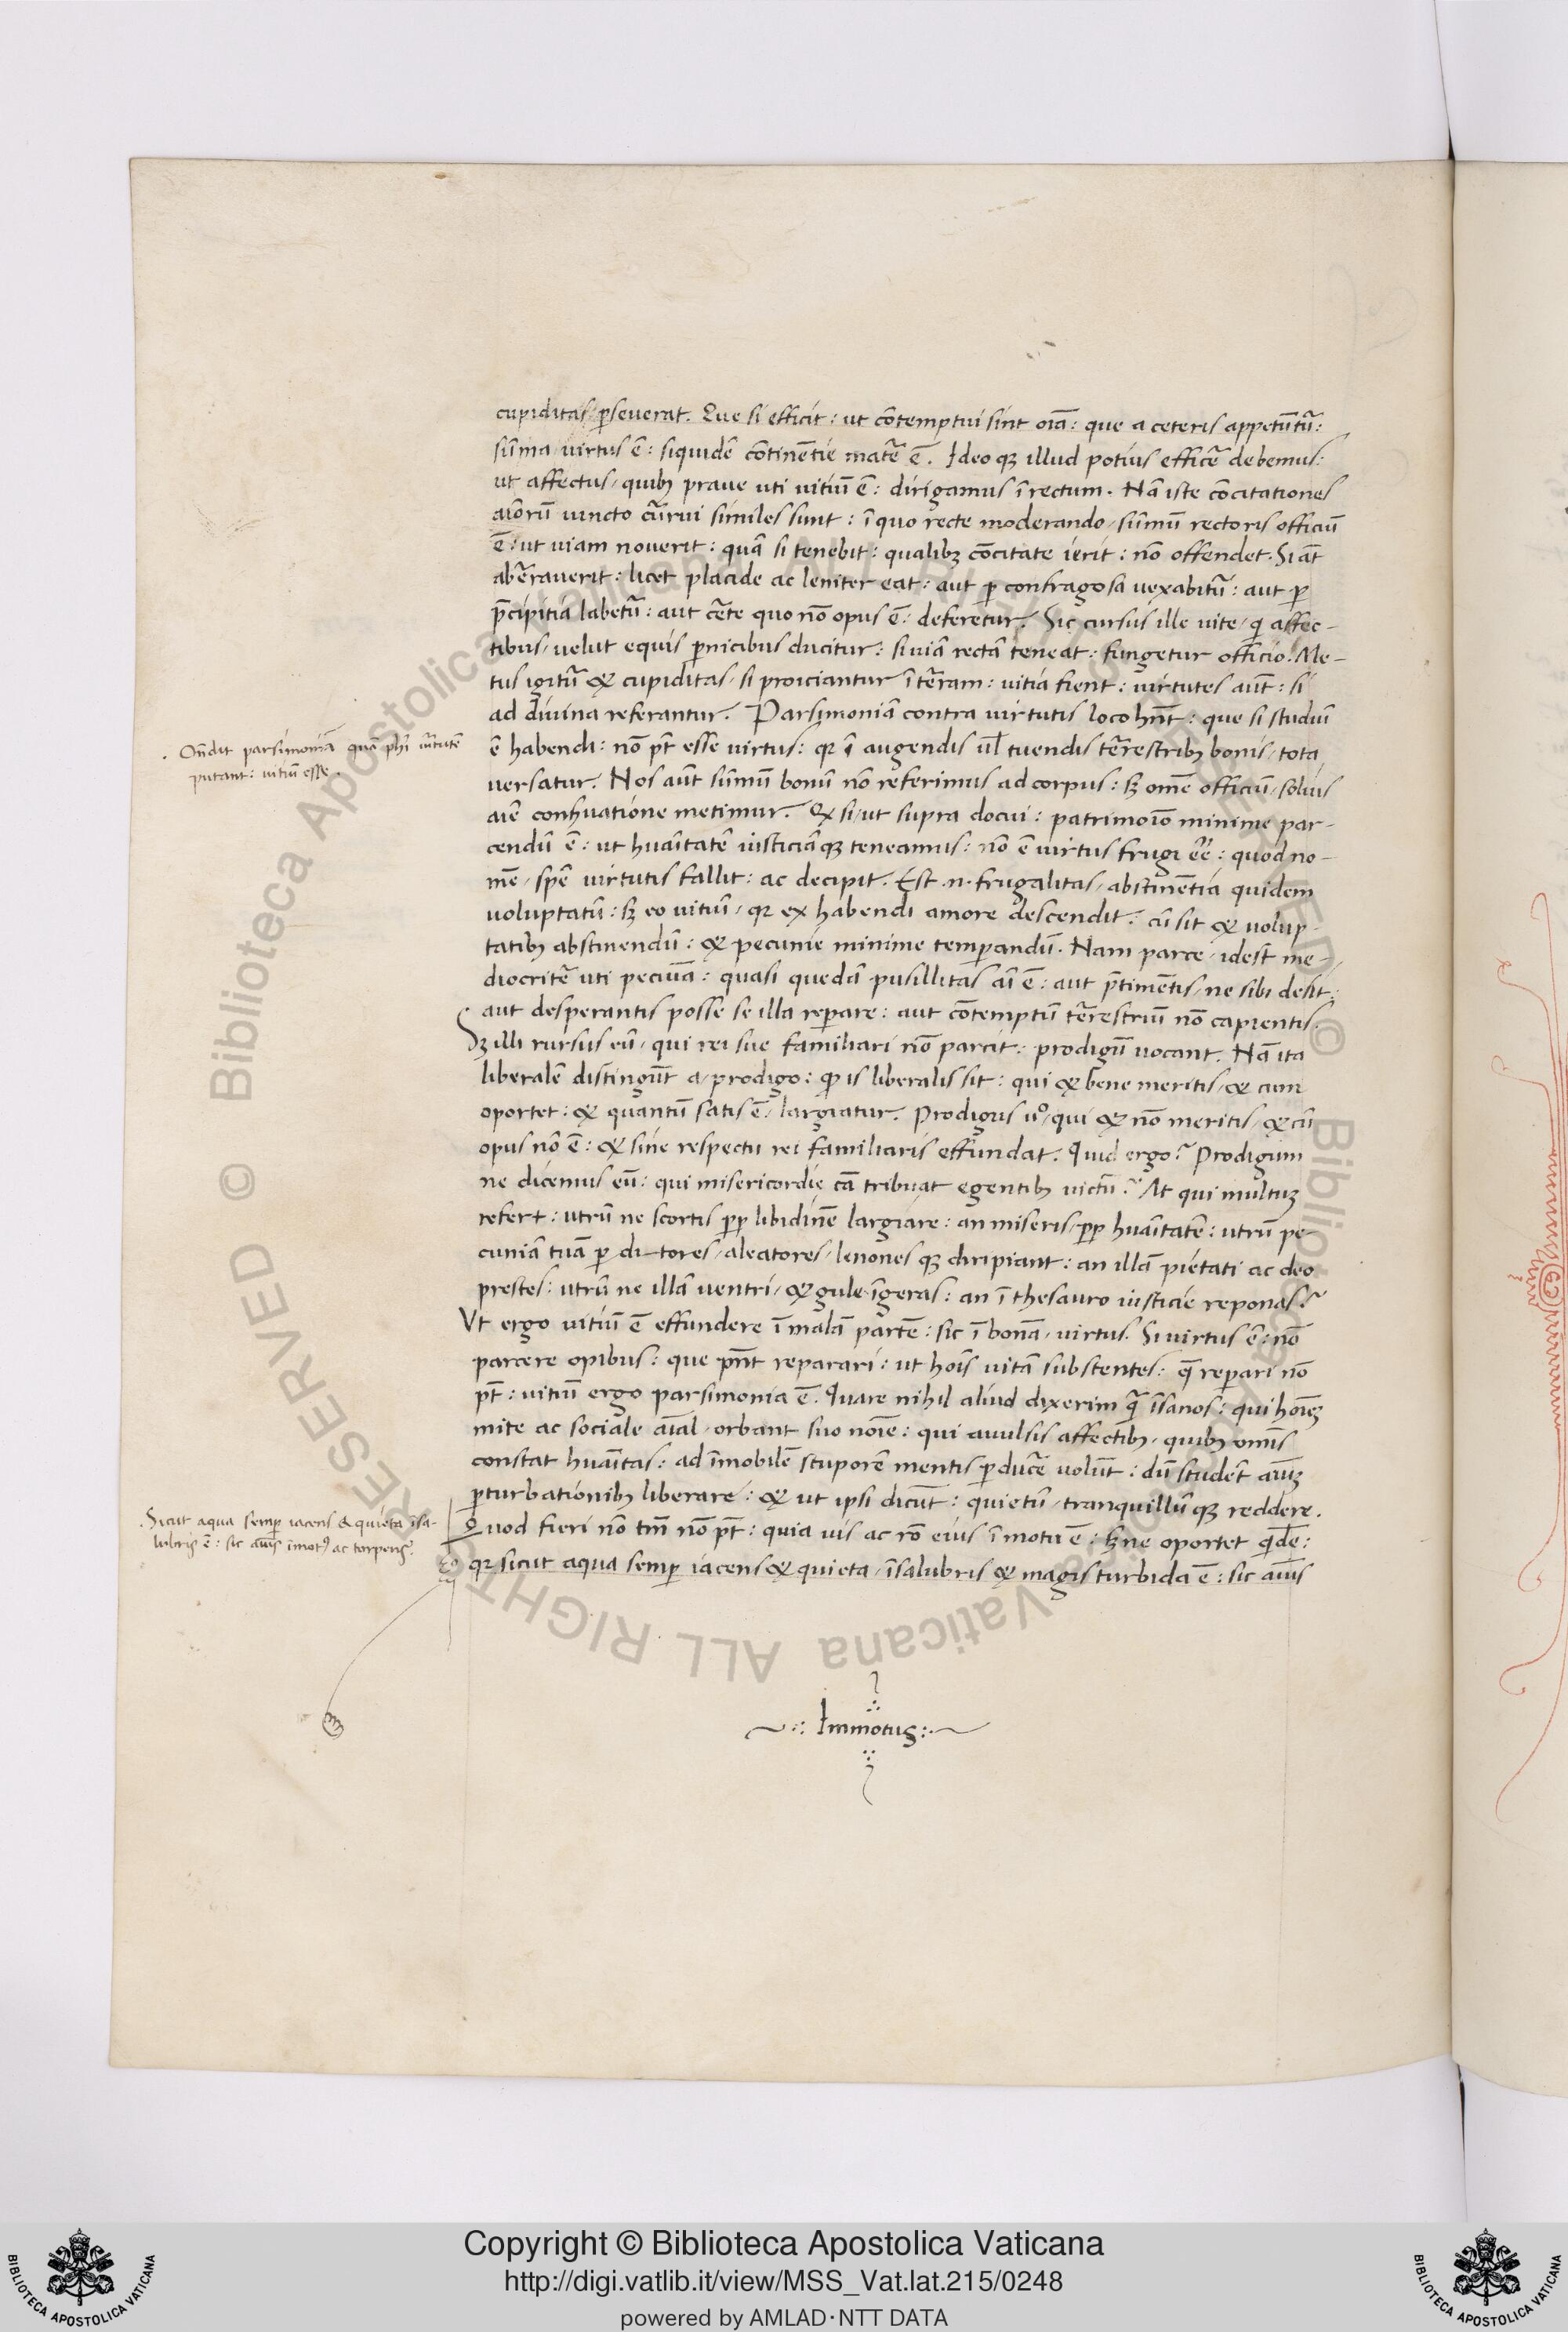 cupiditas p̱seuerat. Que si efficit: ut cõtemptui sint oĩa: que a ceteris appetũtur̃:
sũma virtus ẽ: siquidẽ cõtinẽtie mater̃ ẽ. Ideo qꝫ illud potius efficer̃ debemus:
ut affectus, quibꝫ praue uti uitiũ ẽ: dirigamus ĩ rectum. Nã iste cõcitationes
aĩorũ iuncto cur̃rui similes sunt: ĩ quo recte moderando, sũmũ rectoris officiũ
ẽ: ut uiam nouerit: quã si tenebit: qualibꝫ cõcitate ierit: nõ offendet. Si aũt
aber̃rauerit: licet placide ac leniter eat: aut ꝑ confragosa uexabitur̃: aut ꝑ
p̃cipitia labetur̃: aut cer̃te quo nõ opus ẽ: deferetur. Sic cursus ille uite, qͥ affec-
tibus, uelut equis ꝑnicibus ducitur: si uiã rectã teneat: fungetur officio. Me-
tus igitur̃ & cupiditas, si proiciantur ĩ ter̃ram: uitia fient: uirtutes aũt: si
ad diuina referantur. Parsimoniã contra uirtutis loco hñt: que si studiũ
ẽ habendi: nõ pт̃ esse uirtus: qꝛ ĩ augendis ul̃ tuendis ter̃restribꝫ bonis, tota
uersatur. Nos aũt sũmũ bonũ nõ referimus ad corpus: sꝫ omẽ officiũ, solius
aĩe conseruatione metimur. Et si, ut supra docui: patrimoĩo minime par-
cendũ ẽ: ut huãitatẽ iusticiãqꝫ teneamus: nõ ẽ uirtus frugi eẽ: quod no-
mẽ, spẽ uirtutis fallit: ac decipit. Est .n. frugalitas, abstinẽtia quidem
uoluptatũ: sꝫ eo uitiũ, qꝛ ex habendi amore descendit: cũ sit & uolup-
tatibꝫ abstinendũ: & pecunie minime temꝑandũ. Nam parce, idest me-
diocriter̃ uti pecuĩa: quasi quedã pusillitas aĩ ẽ: aut p̃timẽtis, ne sibi desit:
aut desperantis posse se illa reꝑare: aut cõtemptũ ter̃restriũ nõ capientis.
Sꝫ illi rursus eũ, qui rei sue familiari nõ parcit: prodigũ uocant. Nã ita
liberalẽ distingũt a, prodigo: qͩ is liberalis sit: qui & bene meritis, & cum
oportet: & quantũ satis ẽ, largiatur. Prodigus uͦ, qui & nõ meritis, & cũ
opus nõ ẽ: & sine respectu rei familiaris effundat. Quid ergo? Prodigum
ne dicemus eũ: qui misericordie cã tribuat egentibꝫ uictũ? At qui multuꝫ
refert: utrũ ne scortis ꝓp̱ libidinẽ largiare: an miseris, ꝓp̱ huãitatẽ: utrũ pe
cuniã tuã ꝑductores, aleatores, lenones qꝫ diripiant: an illã pietati ac deo
prestes: utrũ ne illã uentri, & gule ĩgeras: an ĩ thesauro iusticie reponas?
Vt ergo uitiũ ẽ effundere ĩ malã partẽ: sic ĩ bonã, uirtus. Si uirtus ẽ: nõ
parcere opibus: que pñt reparari: ut hoĩs uitã substentes: q̃ reꝑari nõ
pт̃: uitiũ ergo parsimonia ẽ. Quare nihil aliud dixerim q̃ ĩsanos: qui hoĩeꝫ
mite ac sociale aĩal, orbant suo noĩe: qui auulsis affectibꝫ, quibꝫ omĩs
constat huãitas: ad ĩmobilẽ stuporẽ mentis ꝑducer̃ uolũt: dũ studẽt aĩuꝫ
ꝑturbationibꝫ liberare: & ut ipsi dicũt: quietũ, tranquillũ qꝫ reddere.
Quod fieri nõ tm̃ nõ pт̃: quia uis ac rõ eius ĩ motu ẽ: sꝫ ne oportet qͥdẽ:
qꝛ sicut aqua semꝑ iacens & quieta, ĩsalubris & magis turbida ẽ: sic aĩus
Immotus
Oñdit parsimoniã quã phi uir̃tutẽ
putant: uitiũ esse.
Sicut aqua semꝑ iacens & quieta ĩsa-
lubris ẽ: sic aĩus ĩmotꝰ ac torpens.
Copyright © Biblioteca Apostolica Vaticana
http://digi.vatlib.it/view/MSS_Vat.lat.215/0248
powered by AMLAD·NTT DATA
BIBLIOTECA APOSTOLICA VATICANA
BIBLIOTECA APOSTOLICA VATICANA
© Biblioteca Apostolica Vaticana ALL RIGHTS RESERVED